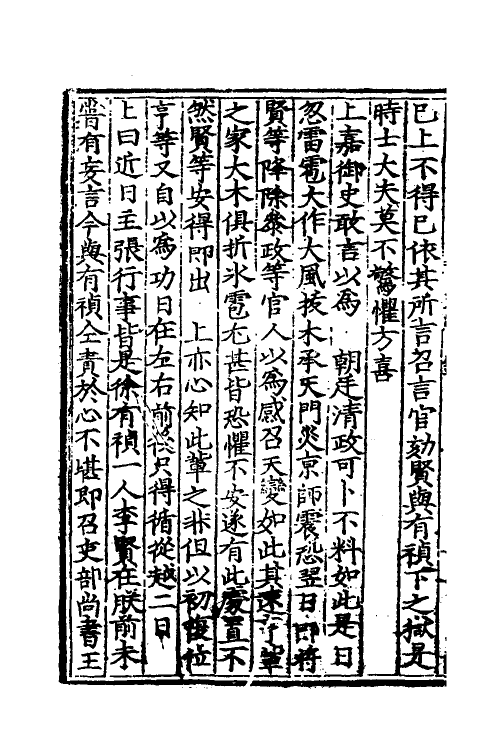 已上不得已依其所言召言官劾賢與有禎下之獄是
時士大夫莫不驚懼方喜
上嘉御史敢言以為　朝廷清政可卜不料如此是日
忽雷雹大作大風㧞木承天門災京師震恐翌日即將
賢等降除叅政等官人以為感召天變如此其速亨輩
之家大木俱折氷雹尤甚皆恐懼不安遂有此處置不
然賢等安得即出　上亦心知此輩之非但以初復位
亨等又自以為功日在左右前後只得循從越二日
上曰近日主張行事皆是徐有禎一人李賢在朕前未
甞有妄言今與有禎仝責於心不堪即召吏部尚書王